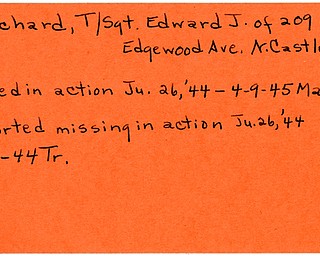 chard, T/Sgt. Edward J. of 209
Edgewood Ave. N. Castl
ed in action Ju. 26,'44 – 4-9-45 Ma
rted missing in action Ju. 26,'44
-44 Tr.